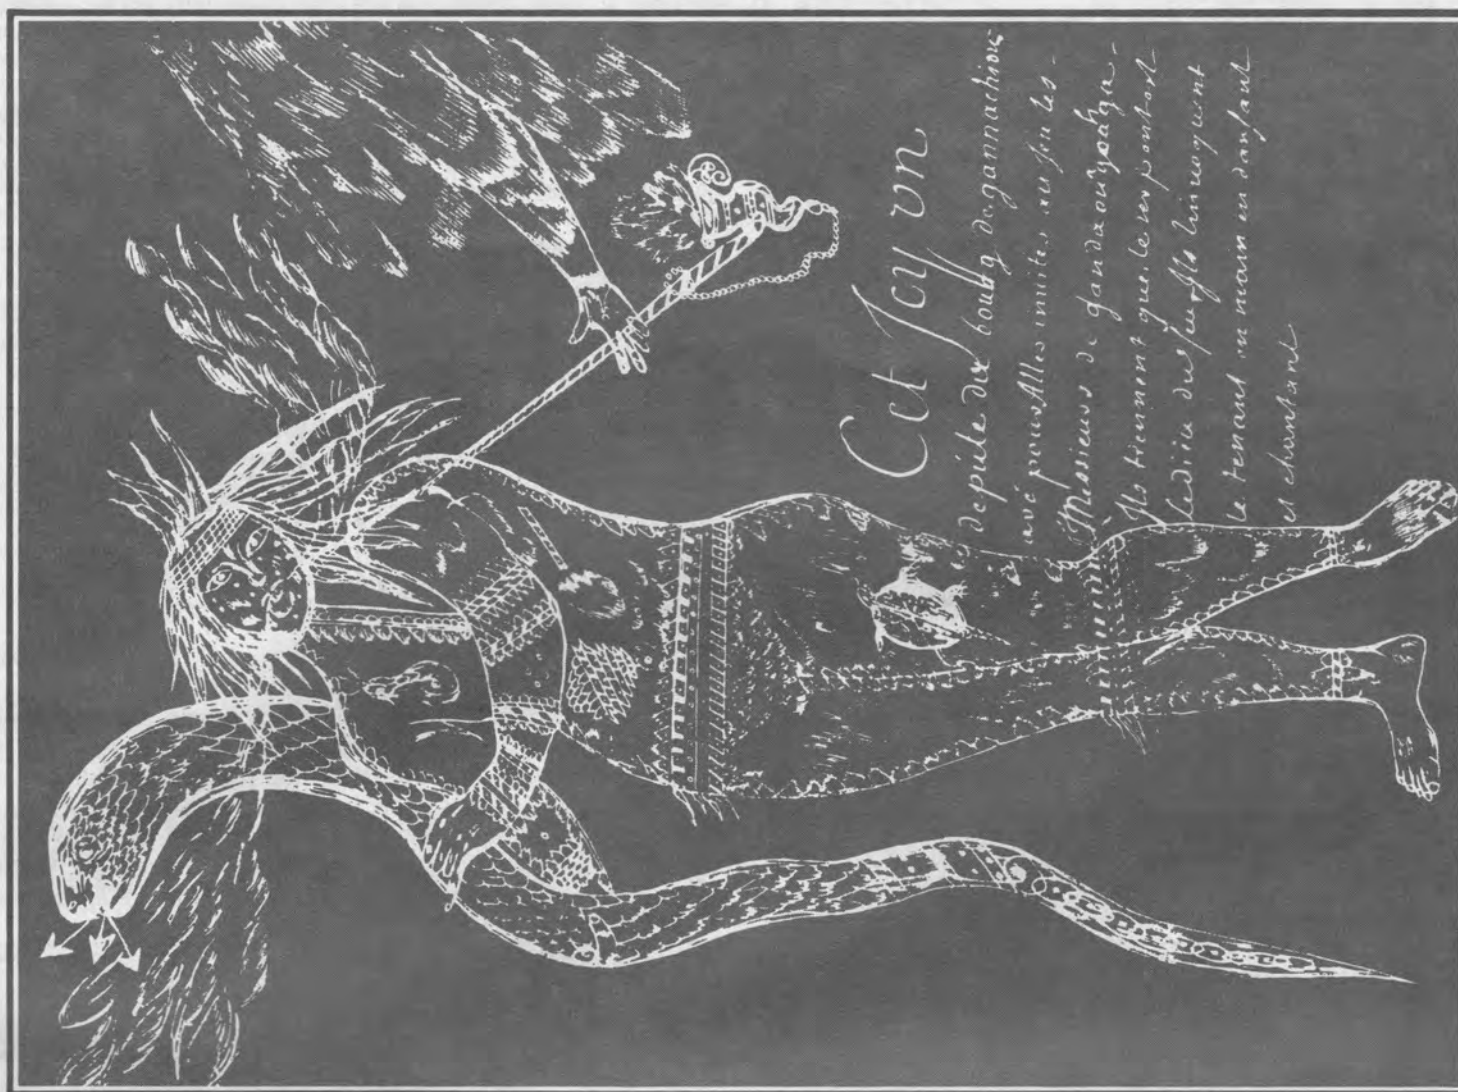 Cet Jcy un
deputé du bourg de gannachiou
avé pour Aller inuiter au jeu les -
Messieurs de
Jls tiennent que le serpent est
Le dieu du feu Jls Linuoquent
le tenant en main en dansant
et chantant